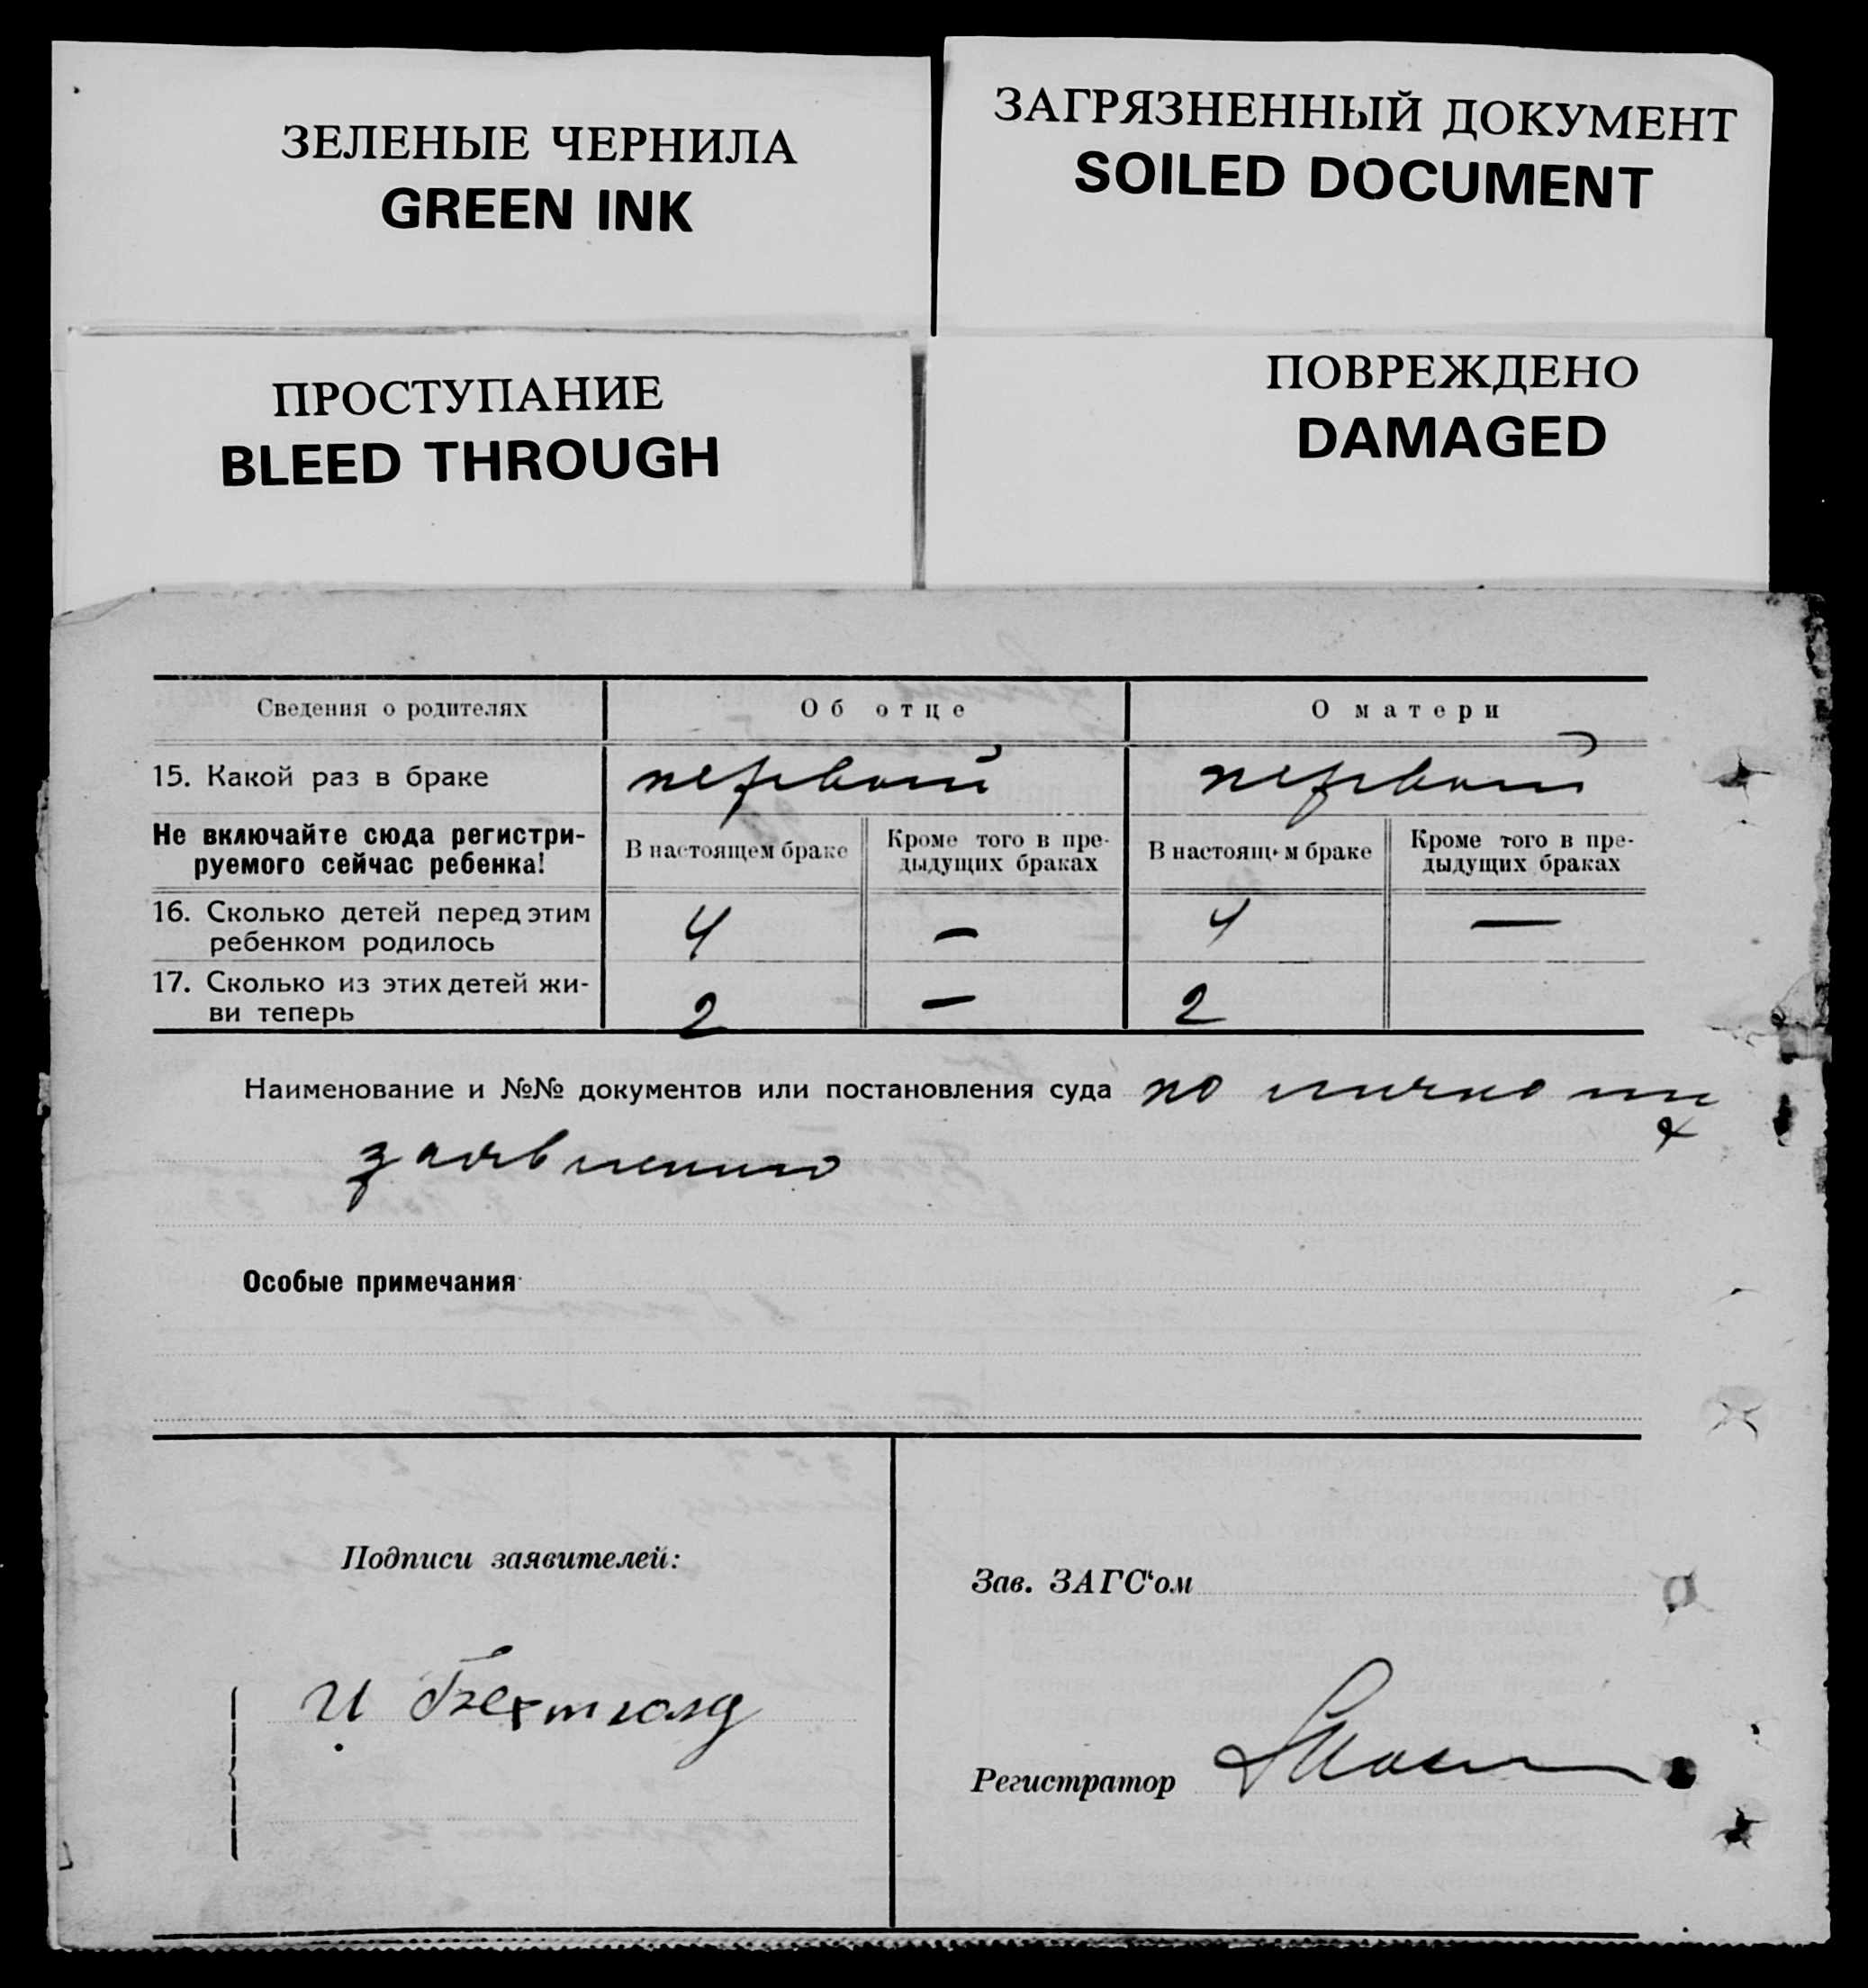 ЗЕЛЕНЫЕ ЧЕРНИЛА
GREEN INK
ЗАГРЯЗНЕННЫЙ ДОКУМЕНТ
SOILED DOCUMENT
ПРОСТУПАНИЕ
BLEED THROUGH
ПОВРЕЖДЕНО
DAMAGED
Сведения о родителях Об отце О матери
15. Какой раз в браке первый первый
Не включайте сюда регистри-
руемого сейчас ребенка!
В настоящем браке
Кроме того в пре-
дыдущих браках
В настоящем браке
Кроме того в пре-
дыдущих браках
16. Сколько детей перед этим
ребенком родилось 4 — 4 —
17. Сколько из этих детей жи-
ви теперь 2 — 2
Наименование и №№ документов или постановления суда по личному
заявлению
Особые примечания
Подписи заявителей:
Зав. ЗАГС‘ом
И
Регистратор